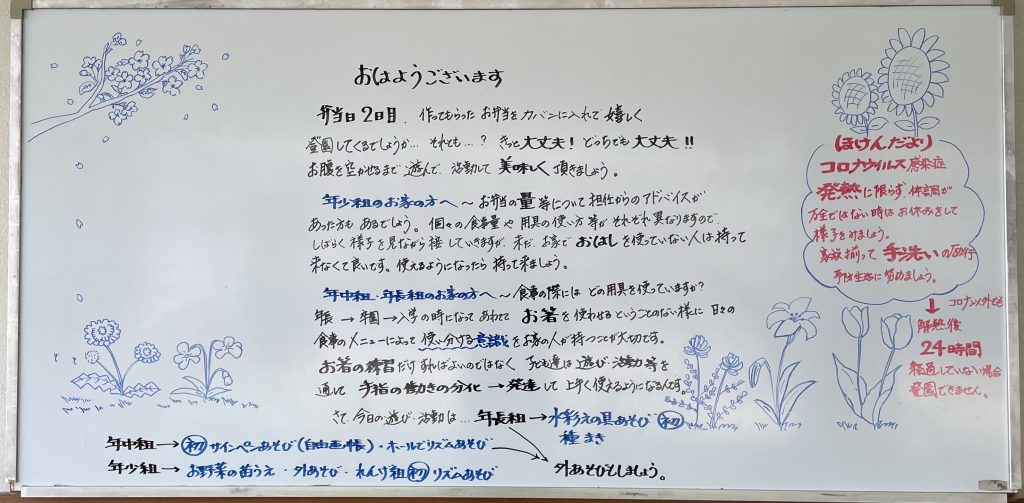 おはようございます
弁当日2日目、作ってもらったお弁当をカバンに入れて嬉しく
登園してくるでしょうか… それとも…？ きっと大丈夫！どっちでも大丈夫!!
お腹を空かせるまで遊んで、活動して美味しく頂きましょう。
年少組のお家の方へ〜お弁当の量等について担任からのアドバイスが
あった方もあるでしょう。個々の食事量や用具の使い方等がそれぞれ異なりますので、
しばらく様子を見ながら接していきますが、未だ、お家でおはしを使っていない人は持って
来なくて良いです。使えるようになったら持って来ましょう。
年中組・年長組のお家の方へ〜食事の際にはどの用具を使っていますか？
年長→卒園→入学の時になってあわててお箸を使わせるということのない様に日々の
食事のメニューによって使い分ける意識をお家の人が持つことが大切です。
お箸の練習だけすればよいのではなく子ども達は遊び・活動等を
通して手指の働きの分化→発達して上手く使えるようになるんです。
さて、今日の遊び・活動は… 年長組→水彩えの具あそび(初)
種まき
年中組→(初)サインペンあそび(自由画帳)・ホールでリズムあそび
年少組→お野菜の苗うえ・外あそび・れんり組(初)リズムあそび
外あそびもしましょう。
(ほけんだより)
コロナウイルス感染症
発熱に限らず、体調が
万全ではない時はお休みをして
様子をみましょう。
家族揃って手洗いの励行
予防生活に努めましょう。
↓ コロナ以外でも
解熱後
24時間
経過していない場合
登園できません。